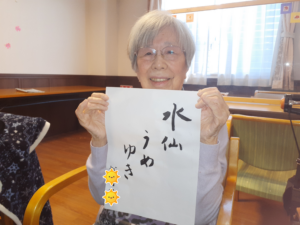 水仙
うめ
ゆき